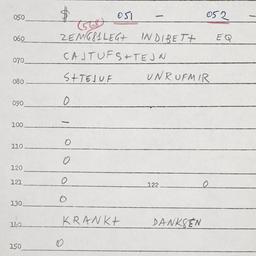 050 $ 051 - 052 -
(568)
060 INDIBET+ EQ
070 CAJTUFS+TEJN
080 S+TEJUF UNRUFMIR
090 0
100 -
110 0
120 0
121 0 122 0
130 0
KRANK+ DANKSEN
150 0